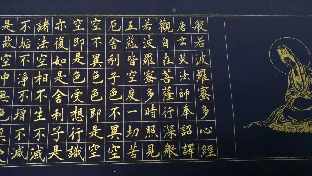 般若波羅蜜多心經
唐三藏法師奉詔譯
觀自在菩薩行深般
若波羅蜜多時照見
五蘊皆空度一切苦
厄舍利子色不異空
空不異色色即是空
空即是色受想行識
亦復如是舍利子是
諸法空相不生不滅
不垢不淨不增不減
是故空中無色